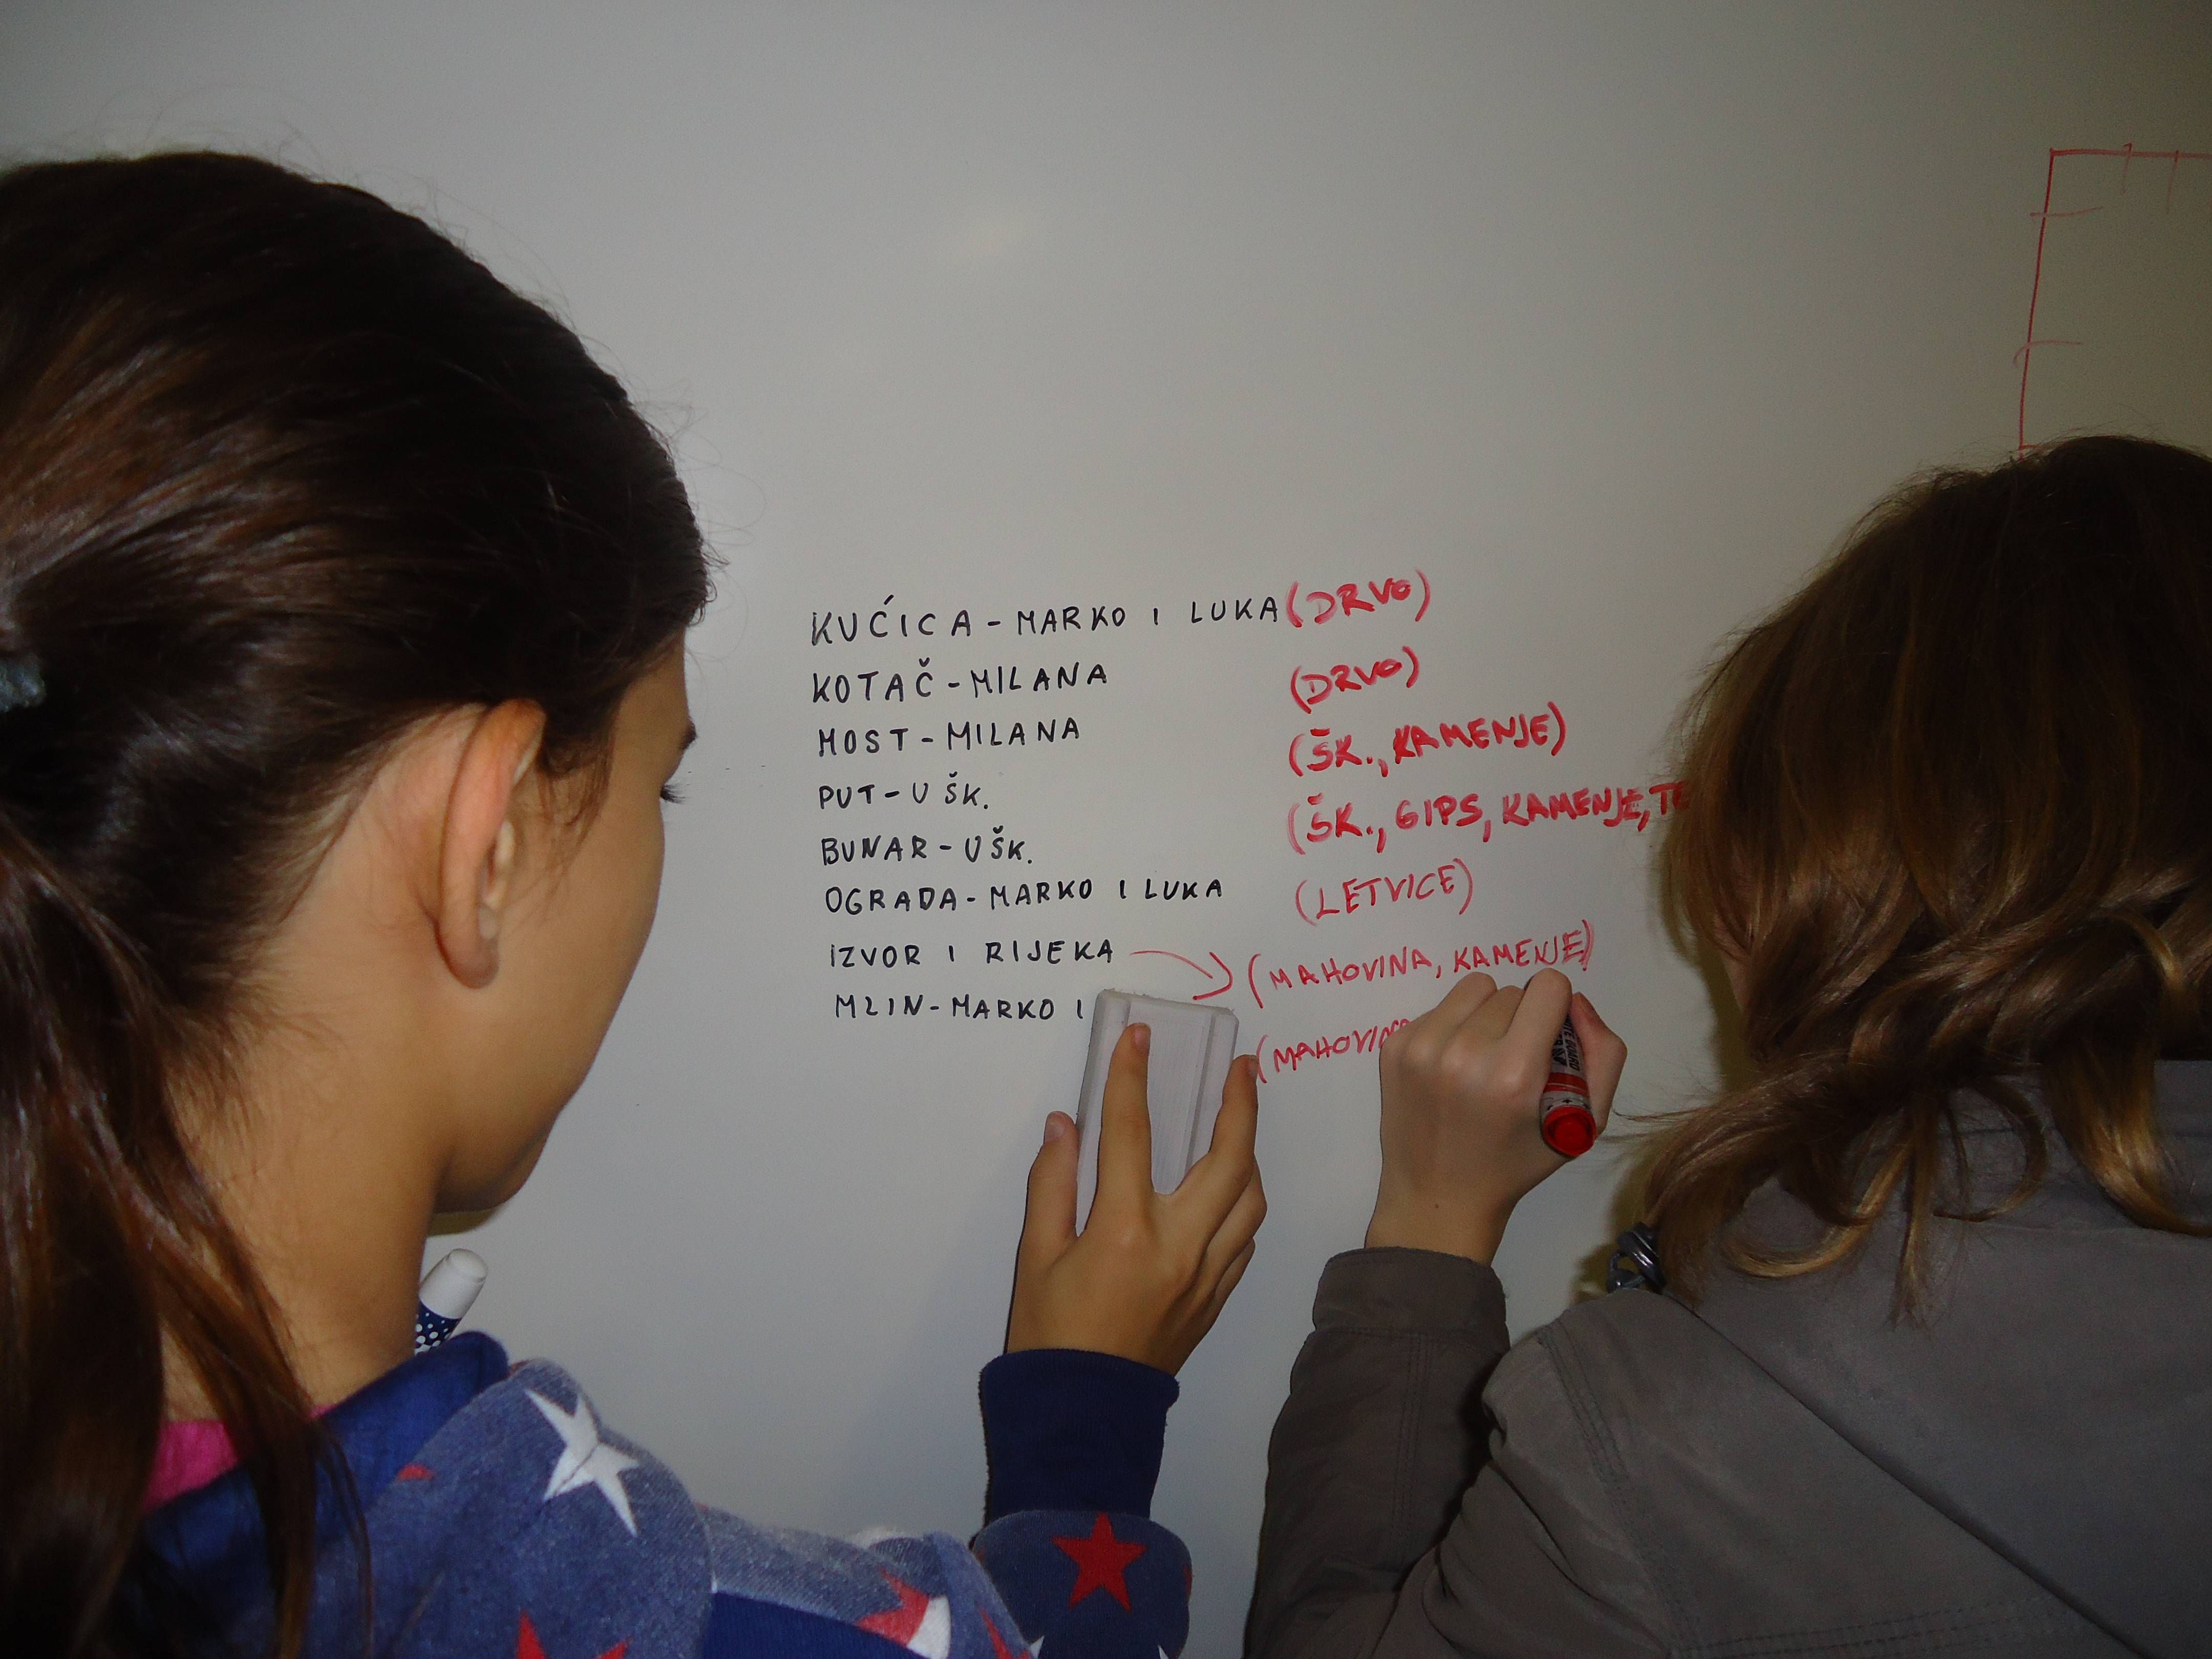 KUĆICA - MARKO I LUKA (DRVO)
KOTAČ - MILANA (DRVO)
MOST - MILANA (ŠK., KAMENJE)
PUT - U ŠK. (ŠK., GIPS, KAMENJE,
BUNAR - U ŠK.
OGRADA - MARKO I LUKA (LETVICE)
IZVOR I RIJEKA (MAHOVINA, KAMENJE)
MLIN - MARKO I